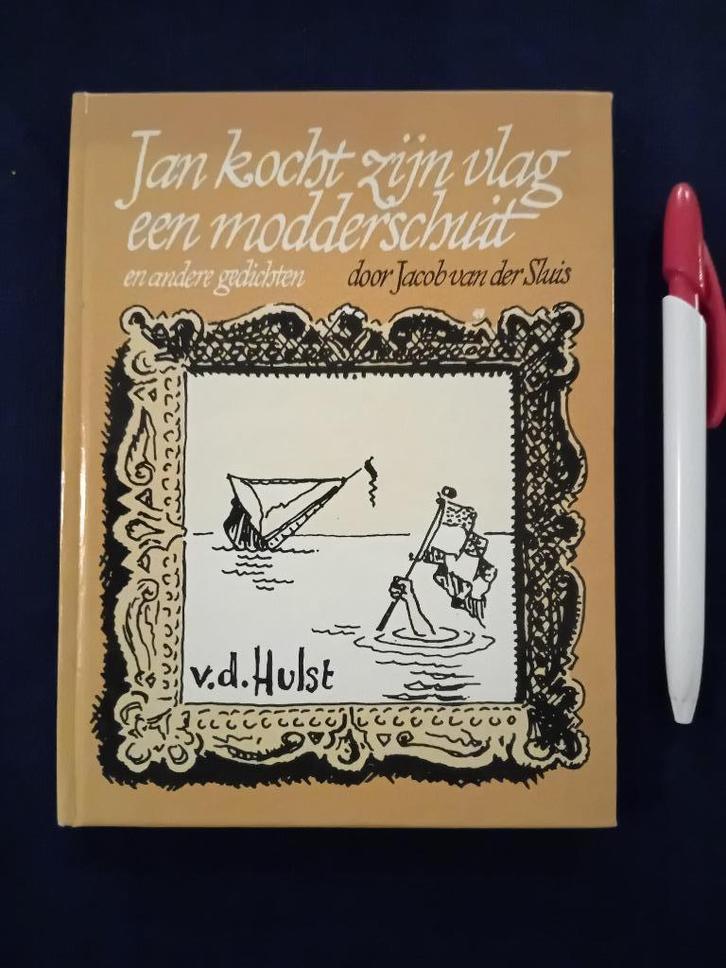 Jan kocht zijn vlag
een modderschuit
en andere gedichten door Jacob van der Sluis
v.d. Hulst